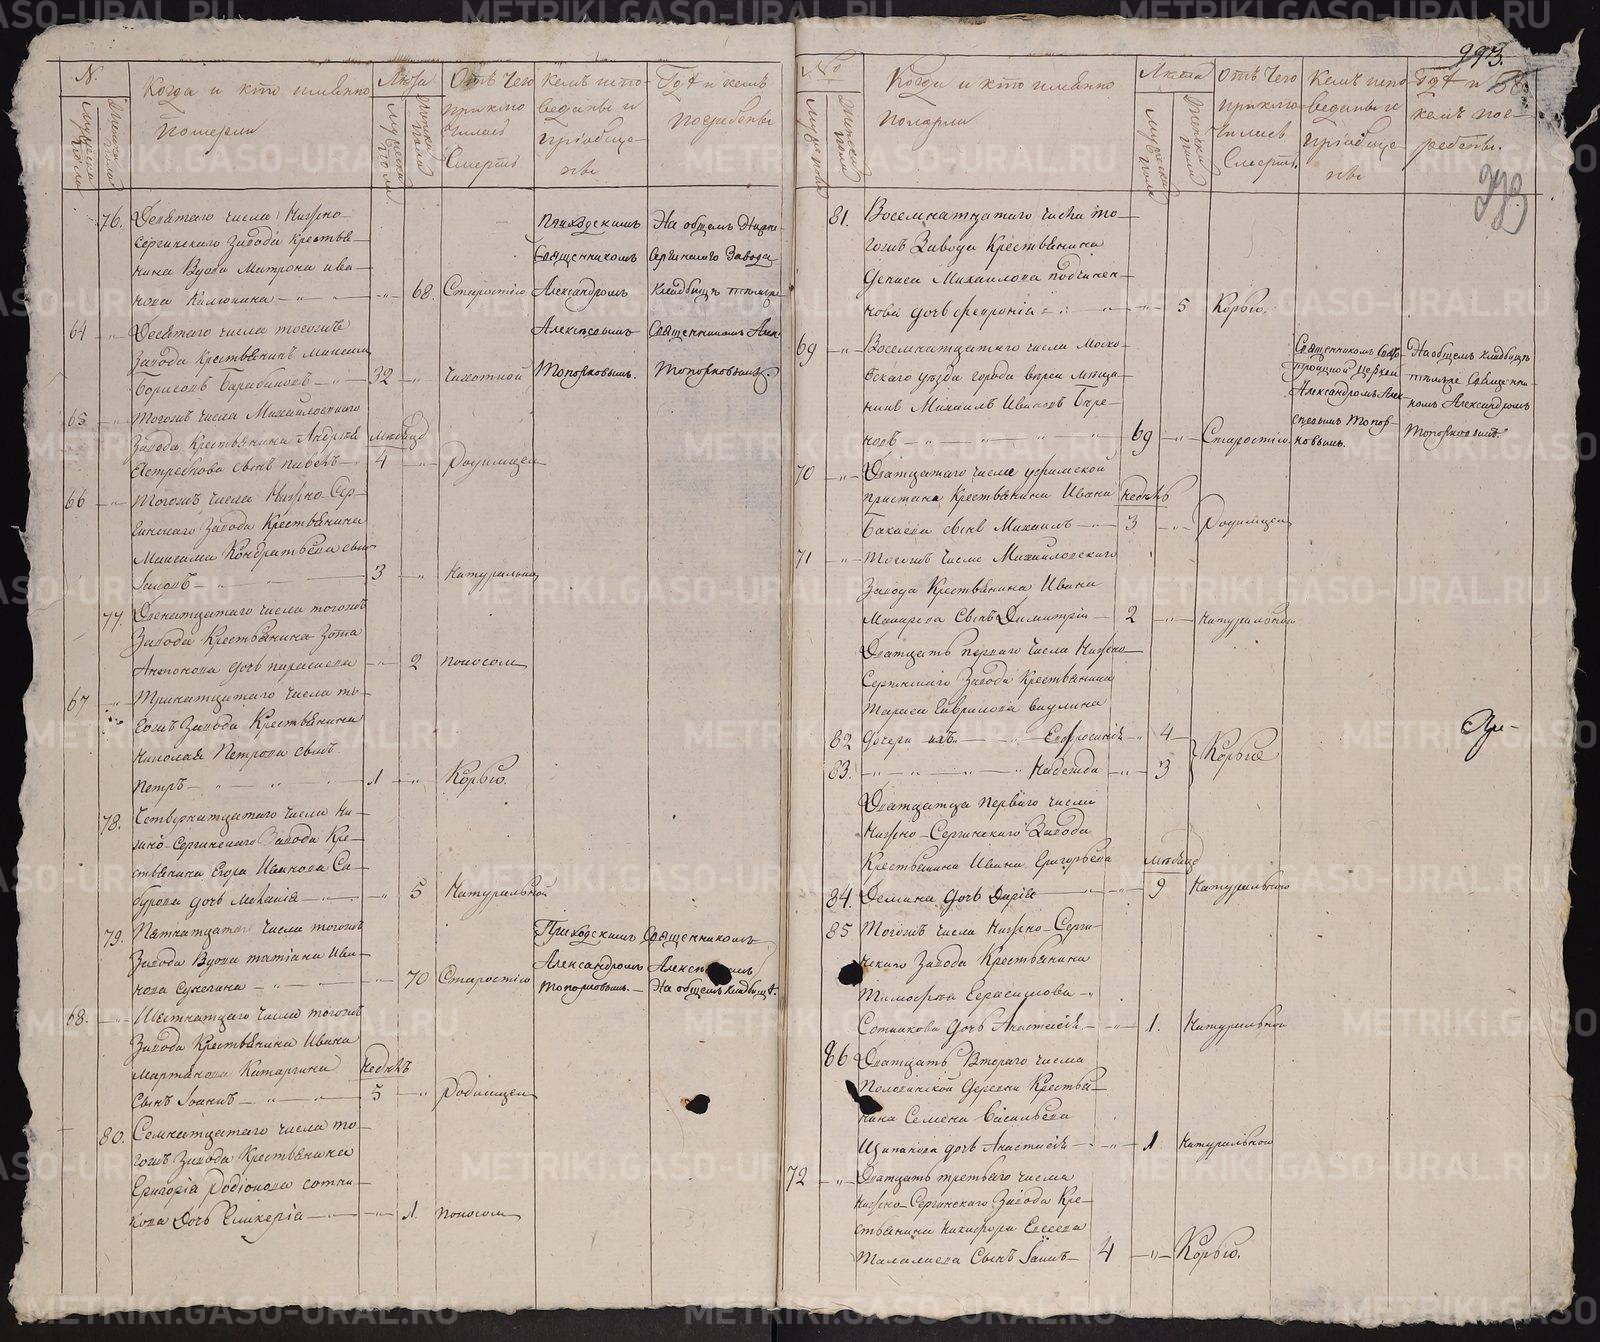 993.
N.
Когда и кто имянно
померли
Лѣта
Отъ чего
приклю
чилась
Смерть
Кемъ испо-
веданы и
пріобще-
ны
Гдѣ и кемъ
погребены
76. Девятаго числа Нижно
сергинскаго завода крестья-
нина Вдова Матрона ива-
нова 68. Старостію
Приходскимъ
Священникомъ
Александромъ
Алексѣевымъ
Топорковымъ.
На общемъ Нижне-
Сергинскаго Завода
Кладбищѣ тѣмъже
Священникомъ Алек-
Топорковымъ.
64 Десятаго числа тогожъ
Завода Крестьянинъ Максим
Борисовъ Барабановъ 32 Чихоткой
65 Тогожъ числа Михайловскаго
Завода Крестьянина Андрея мѣсяцо
Ястребкова сынъ павелъ 4 Родимцем
66 Тогожъ числа Нижно Сер-
гинскаго Завода Крестьянина
Максима Кондратьева сын
Іаковъ 3 Натурально
77. Двенатцатаго числа тогожъ
Завода Крестьянина Зота
Антонова дочь параскева 2 поносом
67 Тринатцатаго числа то-
гожъ Завода Крестьянина
Николая Петрова сынъ
Петръ 1 Корью.
78. Четвернатцатаго числа Ни-
жно-Сергинскаго Завода Кре-
стьянина Егора Иванова Са-
бурова дочь Меланія 5 Натуральной
79. Пятнатцатаго числа тогожъ
Завода Вдова татіана Ива-
нова 70 Старостію
Приходскимъ Священникомъ
Александромъ Алексѣевымъ
Топорковымъ. На общемъ кладбищѣ.
68. Шестнатцаго числа тогожъ
Завода Крестьянина Ивана
Мартынова Катаргина недель
Сынъ Іоаннъ 5 Родимцем
80. Семнатцатаго числа то-
гожъ Завода Крестьянина
Григорія Родіонова сотни-
кова Дочь Гликерія 1. поносом
№
Когда и кто имянно
померли
Лѣта
Отъ чего
приклю-
чилась
Смерть.
Кемъ испо-
веданы и
пріобще-
ны
Гдѣ и
кемъ пог-
ребены.
81. Восемнатцатаго числа то-
гожъ Завода Крестьянина
Дениса Михайлова подчинен-
нова дочь Феврoнія 5 Корью.
69 Восемнатцатаго числа Моско-
вскаго уѣзда города вереи мѣща-
нинъ Михаилъ Ивановъ
69 Старостію.
Священникомъ Свято-
троицкой церкви
Александромъ Алек-
сѣевымъ Топор-
ковымъ.
На общемъ кладбищѣ
тѣмъже Священни-
комъ Александромъ
Топорковымъ.
70 Дватцатаго числа уфимской
пристани Крестьянина Ивана недель
Бакаева сынъ Михаилъ 3 Родимцем
71 Тогожъ числа Михайловскаго
Завода Крестьянина Ивана
Макарова Сынъ Димитрій 2 Натуральной
Дватцать перваго числа Нижно
Сергинскаго Завода Крестьянина
Тараса Гаврилова ваулина
82 дочери ихъ Евфросинія 4
83. Надежда 3 Корью
Дватцать перваго числа
Нижно-Сергинскаго Завода
Крестьянина Ивана Григорьева мѣсяцо
84. Демина дочь Дарія 9 Натурально
85 Тогожъ числа Нижно-Серги-
нскаго Завода Крестьянина
Тимофея Герасимова
Сотникова Дочь Анастасія 1. Натуральной
86 Дватцать Втораго числа
Половинской деревни Крестья-
нина Семена Васильева
Щипанова дочь Анастасія 1 Натуральной
72 Дватцать третьяго числа
Нижно-Сергинскаго Завода Кре-
стьянина Никифора Евсева
Талалаева Сынъ Іаковъ 4 Корью.
METRIKI.GASO-URAL.RU